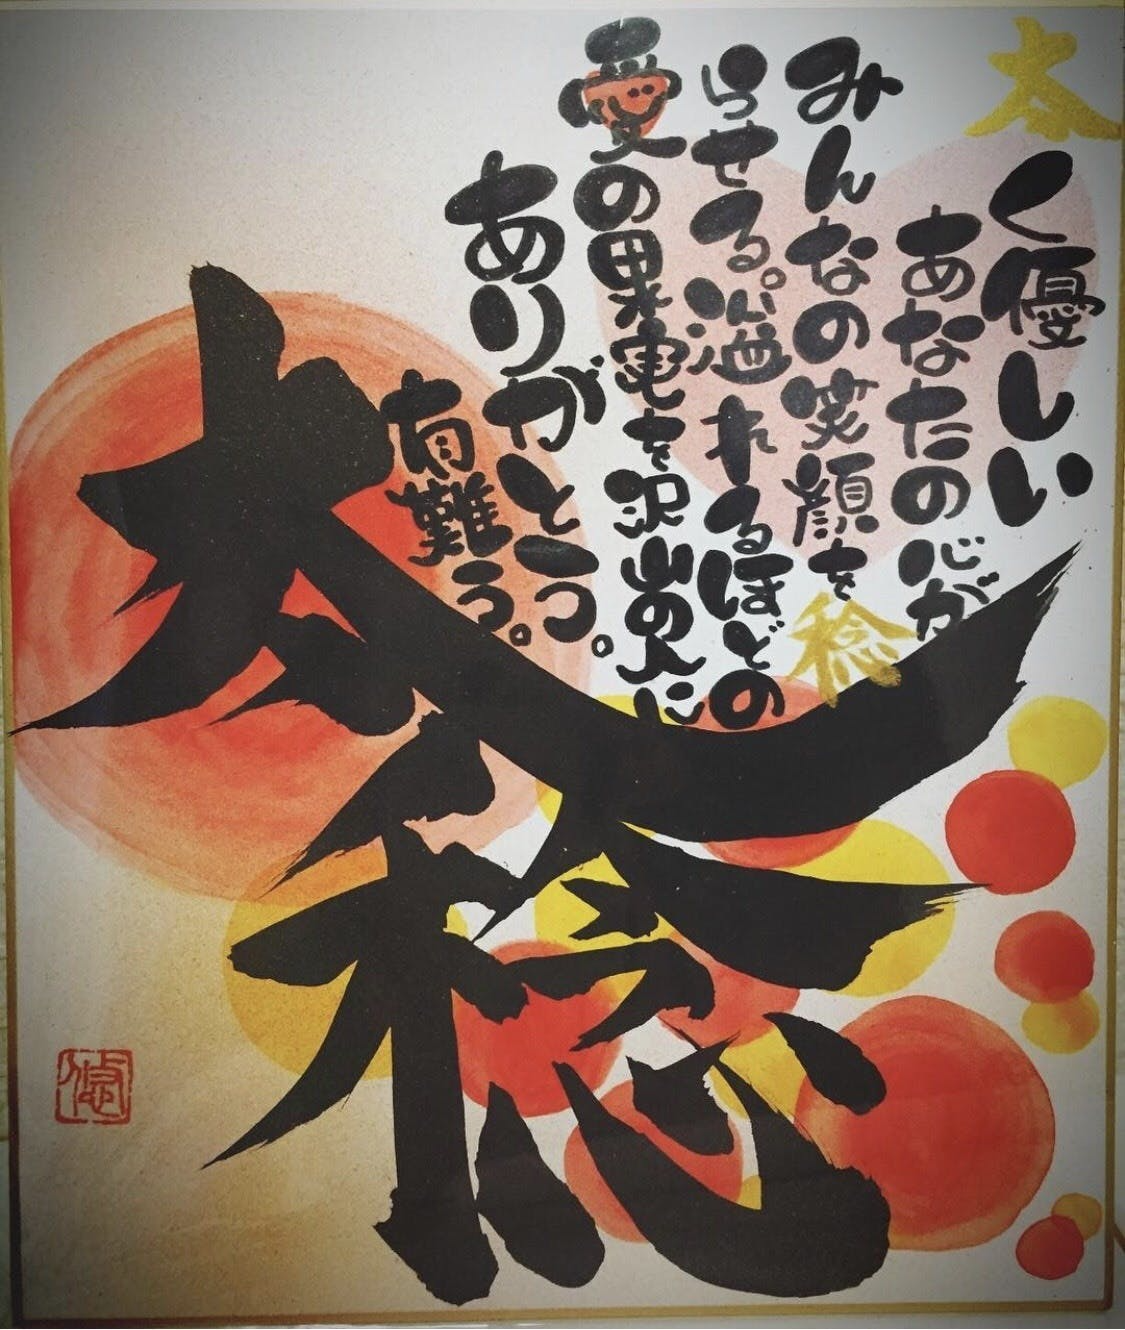 太く優しい
あなたの心が
みんなの笑顔を稔
らせる。溢れるほどの
愛の果実を沢山の人に
ありがとう。
有難う。
太稔
悠